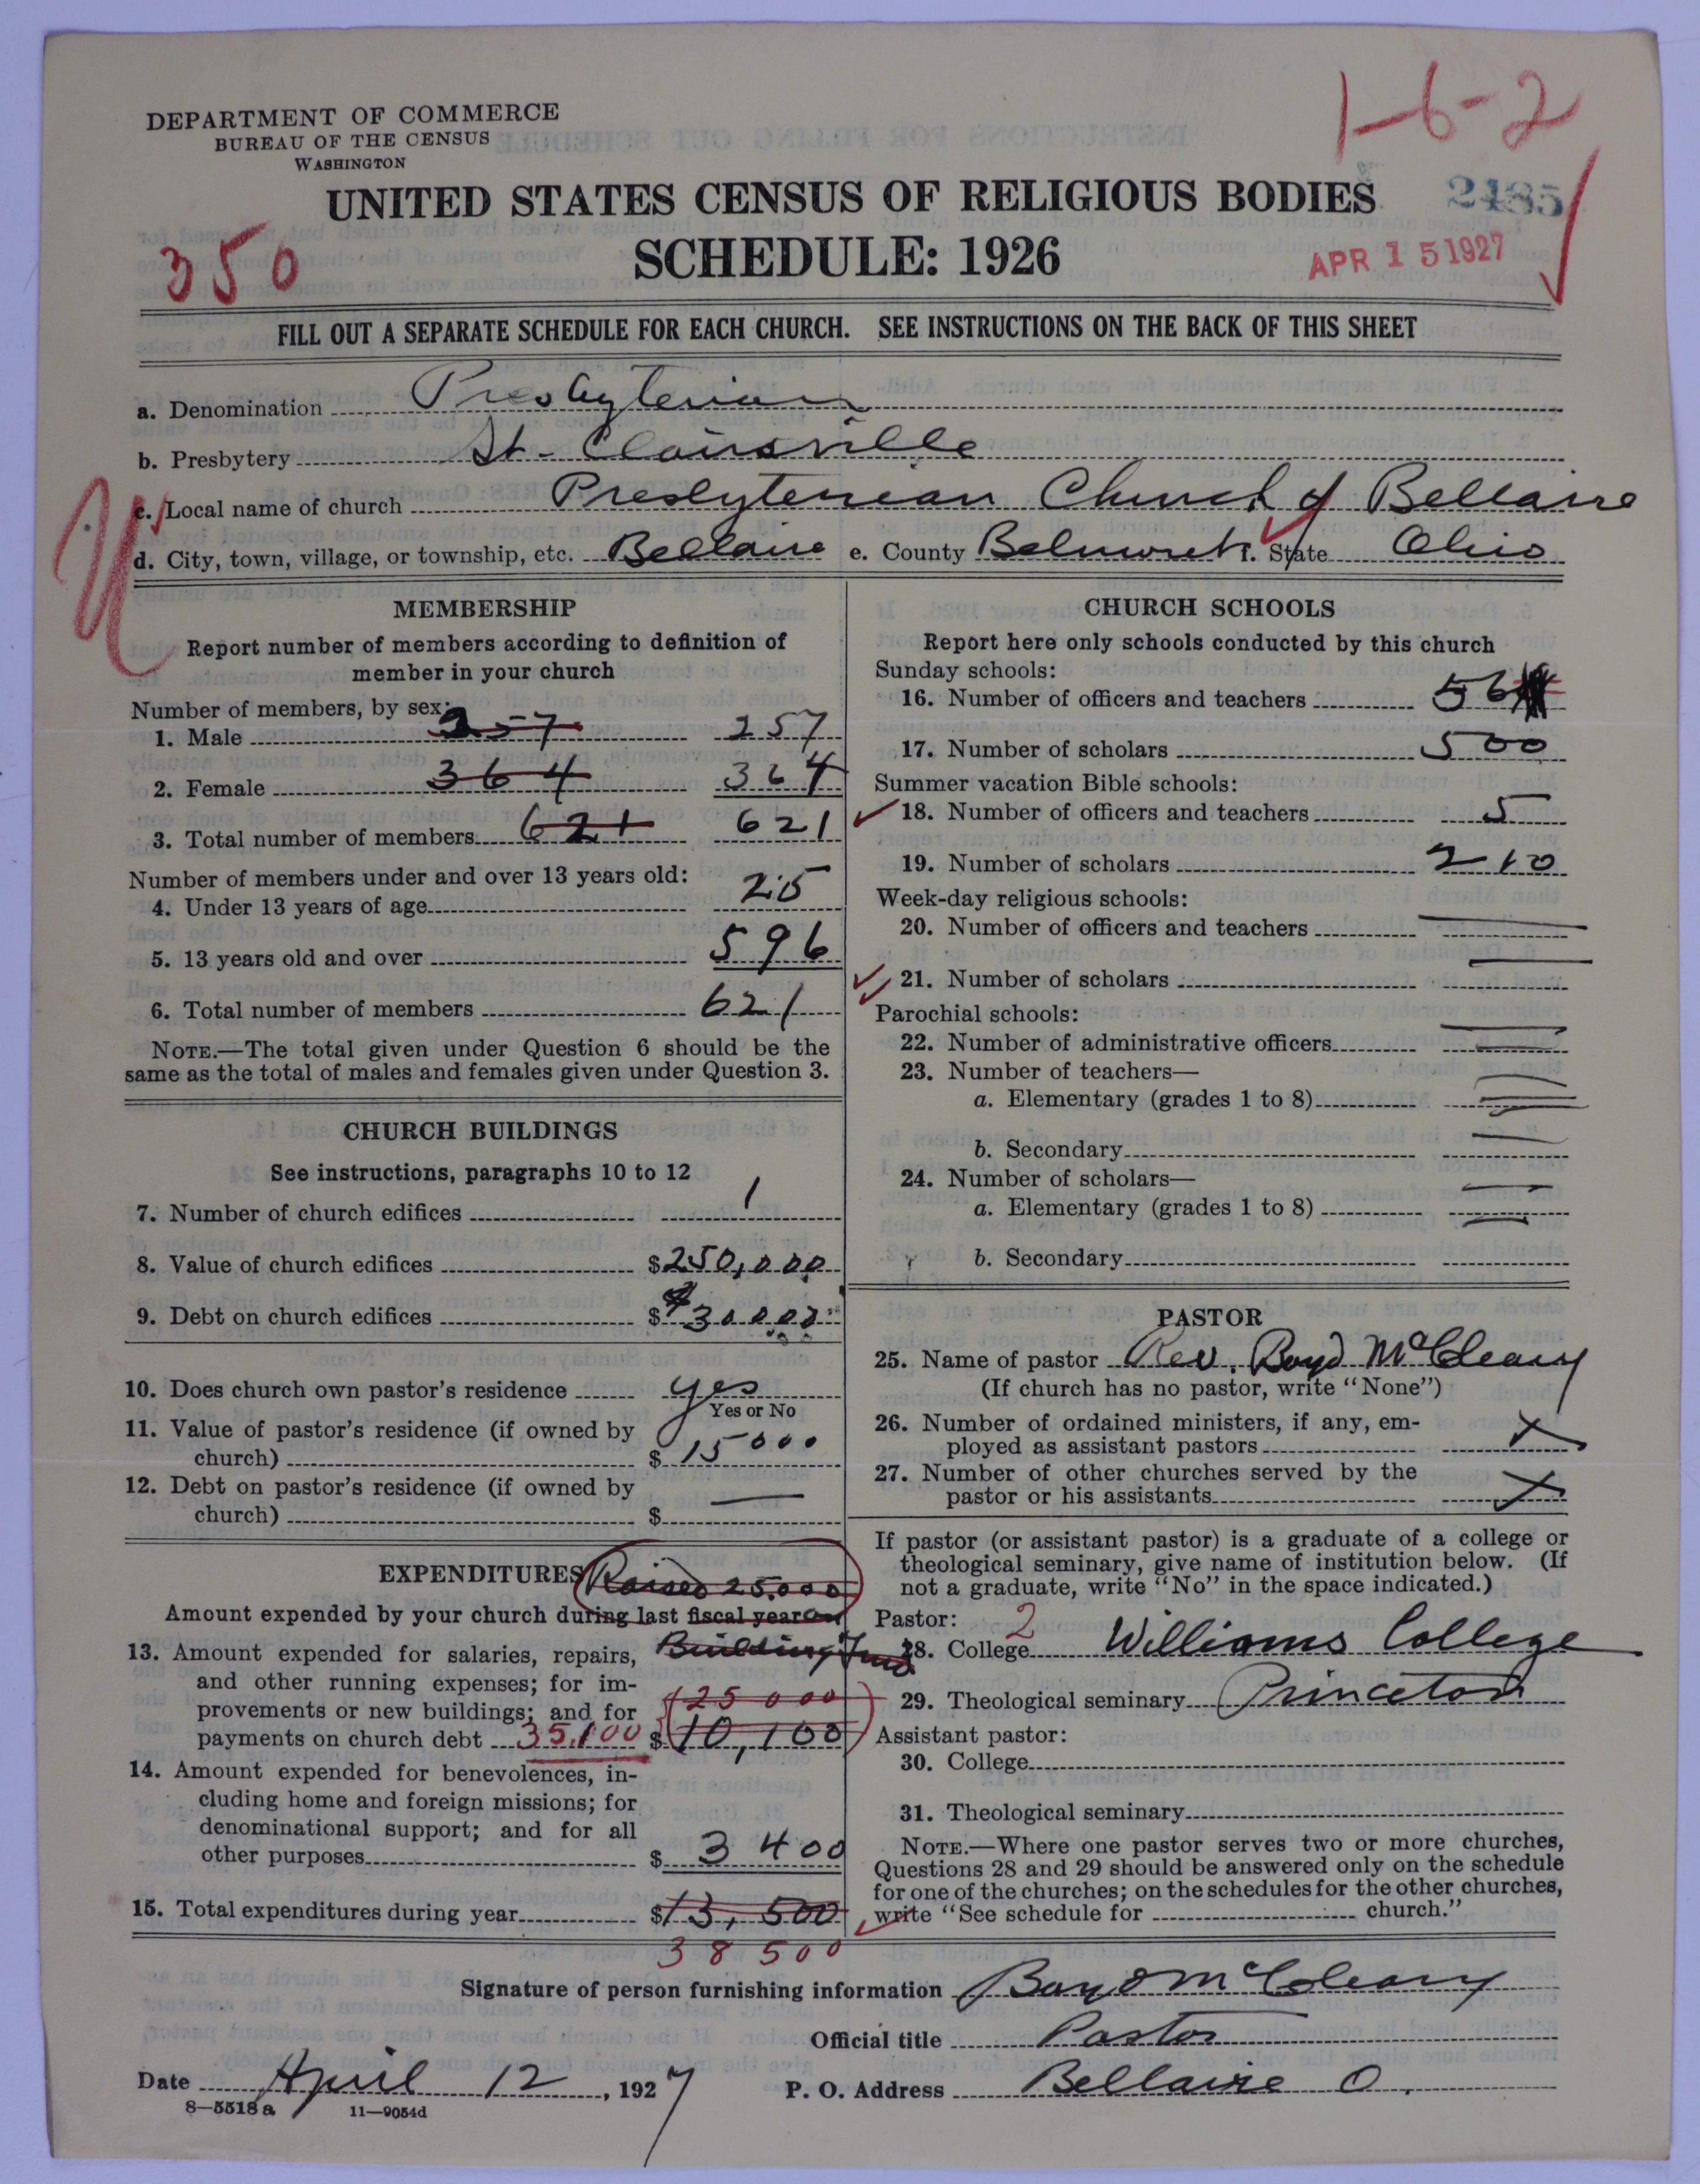 1-6-2
DEPARTMENT OF COMMERCE
BUREAU OF THE CENSUS
WASHINGTON
UNITED STATES CENSUS OF RELIGIOUS BODIES
2485
SCHEDULE: 1926
350
APR 15 1927
FILL OUT A SEPARATE SCHEDULE FOR EACH CHURCH. SEE INSTRUCTIONS ON THE BACK OF THIS SHEET
a. Denomination Presbyterian
b. Presbytery St. Clairsville
c. Local name of church Presbyterian Church of Bellaire
d. City, town, village, or township, etc. Bellaire e. County Belmont f. State Ohio
MEMBERSHIP
Report number of members according to definition of
member in your church
Number of members, by sex:
1. Male 257 257
2. Female 364 364
3. Total number of members 621 621
Number of members under and over 13 years old:
4. Under 13 years of age 25
5. 13 years old and over 596
6. Total number of members 621
NOTE.—The total given under Question 6 should be the
same as the total of males and females given under Question 3.
CHURCH BUILDINGS
See instructions, paragraphs 10 to 12
7. Number of church edifices 1
8. Value of church edifices $250,000
9. Debt on church edifices $ 30000
10. Does church own pastor's residence yes
Yes or No
11. Value of pastor's residence (if owned by
church) $ 15000
12. Debt on pastor's residence (if owned by
church) $ —
EXPENDITURES Raised 25.000
Amount expended by your church during last fiscal year on
Building Fund
13. Amount expended for salaries, repairs,
and other running expenses; for im-
provements or new buildings; and for 25000
payments on church debt 35,100 $ 10,100
14. Amount expended for benevolences, in-
cluding home and foreign missions; for
denominational support; and for all
other purposes $ 3400
15. Total expenditures during year $13,500
38500
CHURCH SCHOOLS
Report here only schools conducted by this church
Sunday schools:
16. Number of officers and teachers 56
17. Number of scholars 500
Summer vacation Bible schools:
18. Number of officers and teachers 5
19. Number of scholars 210
Week-day religious schools:
20. Number of officers and teachers —
21. Number of scholars —
Parochial schools:
22. Number of administrative officers —
23. Number of teachers—
a. Elementary (grades 1 to 8) —
b. Secondary —
24. Number of scholars—
a. Elementary (grades 1 to 8) —
b. Secondary
PASTOR
25. Name of pastor Rev. Boyd McCleary
(If church has no pastor, write "None")
26. Number of ordained ministers, if any, em-
ployed as assistant pastors X
27. Number of other churches served by the
pastor or his assistants X
If pastor (or assistant pastor) is a graduate of a college or
theological seminary, give name of institution below. (If
not a graduate, write "No" in the space indicated.)
Pastor: 2
28. College Williams College
29. Theological seminary Princeton
Assistant pastor:
30. College
31. Theological seminary
NOTE.—Where one pastor serves two or more churches,
Questions 28 and 29 should be answered only on the schedule
for one of the churches; on the schedules for the other churches,
write "See schedule for church."
Signature of person furnishing information Boyd McCleary
Official title Pastor
Date April 12, 1927 P. O. Address Bellaire O.
8—5518a 11—9054d